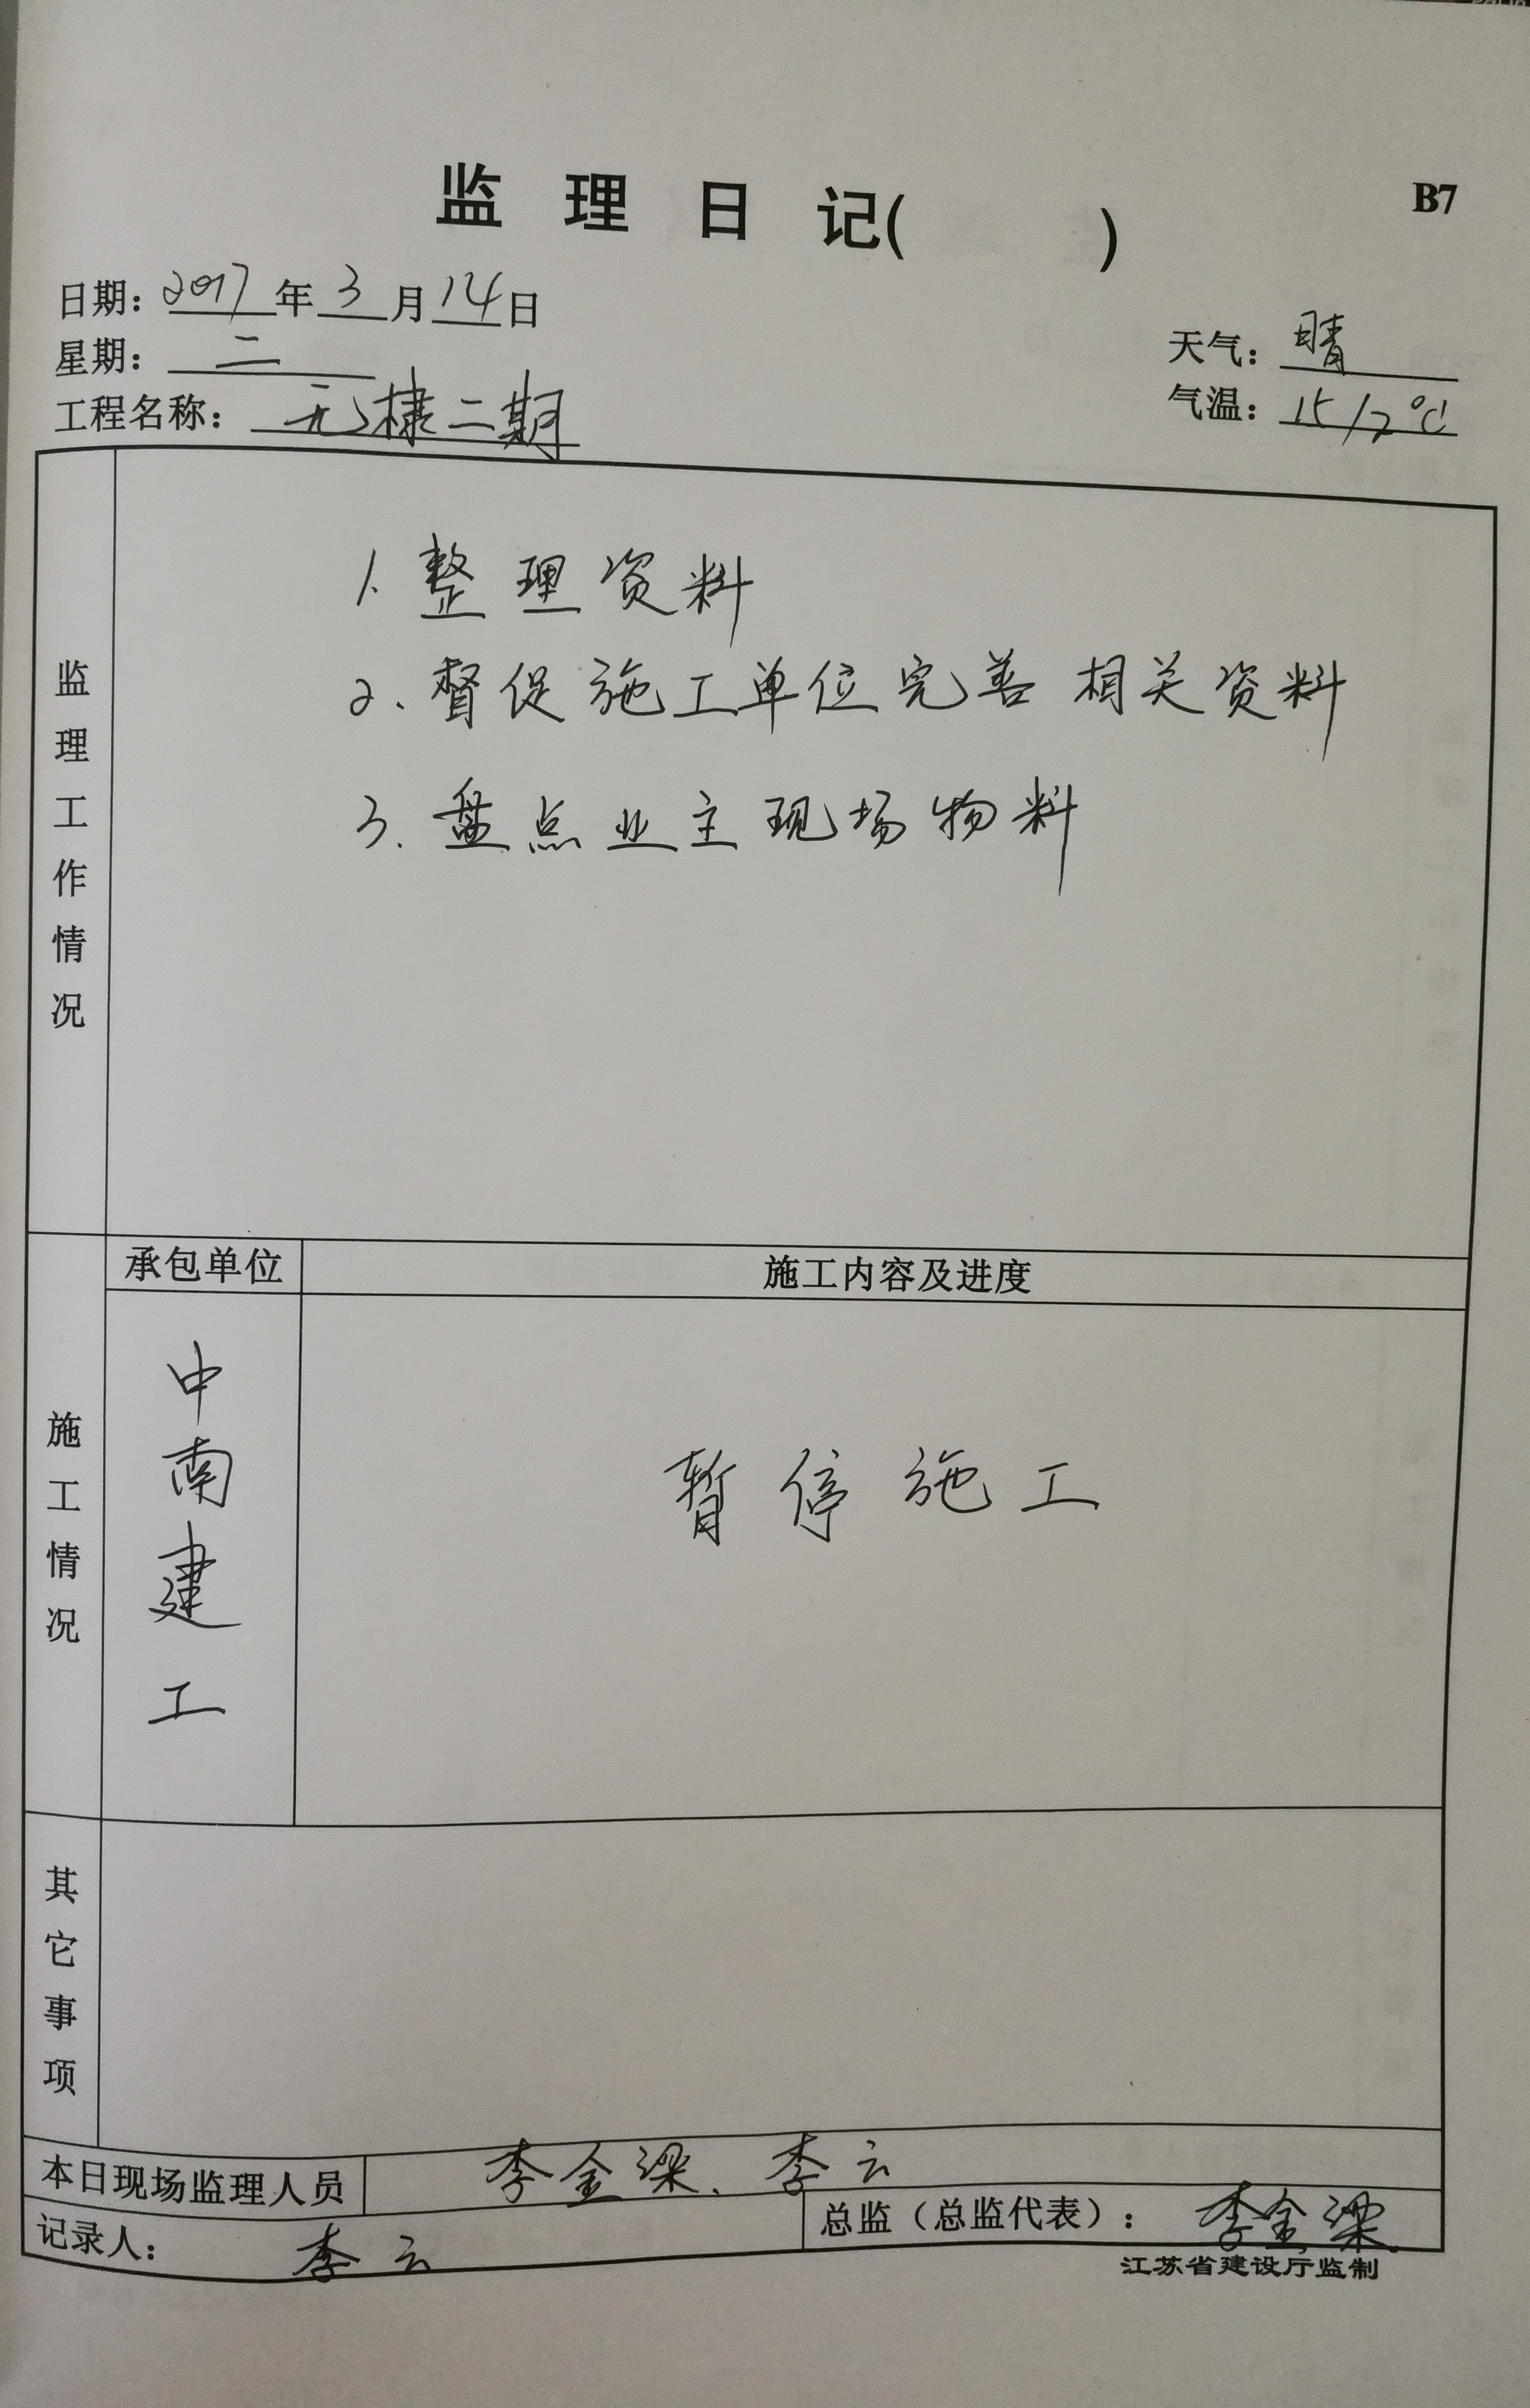 监理日记(        )
B7
日期：2017年3月14日
星期：二
天气：晴
工程名称：无棣二期
气温：15/2℃
监理工作情况
1.整理资料
2、督促施工单位完善相关资料
3.盘点业主现场物料
施工情况
承包单位
施工内容及进度
中南建工
暂停施工
其它事项
本日现场监理人员
李金梁、李云
记录人：李云
总监（总监代表）：李金梁
江苏省建设厅监制